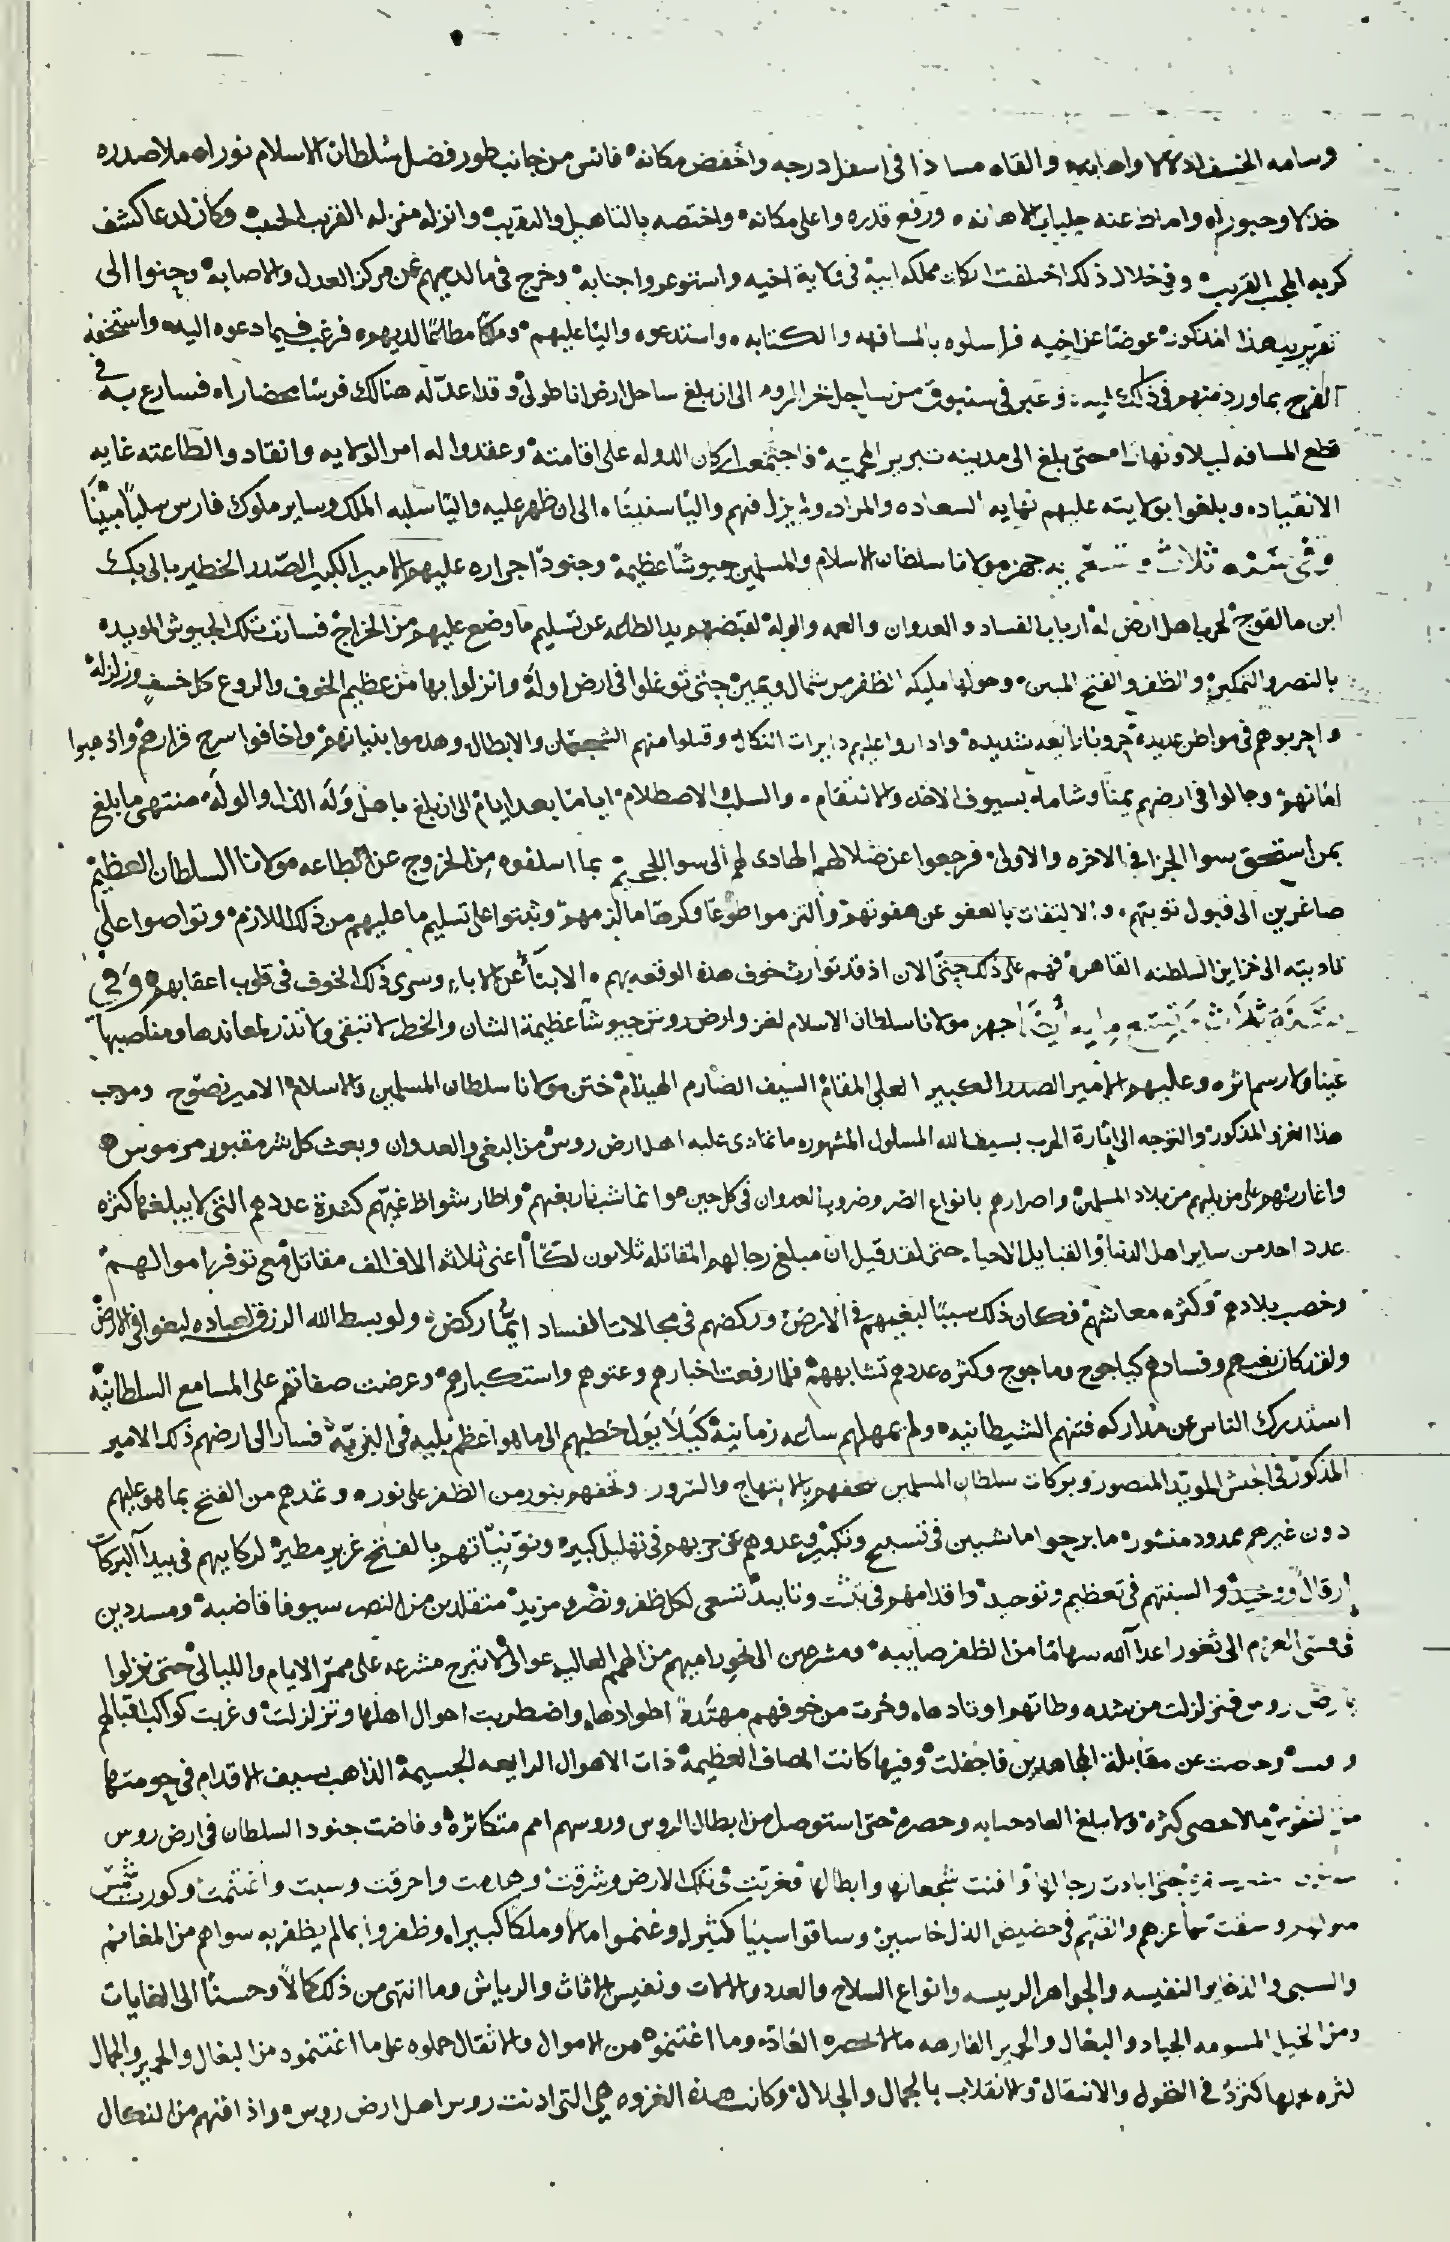 وسامه الخسف اذلالا واهانه والقاه مساذا فى اسفل درجه واخفض مكانه فانس من جانب طور فضل سلطان الاسلام نورا ملا صدره
وحبورا وامراط عنه جلباب الاهانه ورفع قدره واعلى مكانه واختصه بالتاهيل والتقريب وانزله منزله القريب الحبيب وكان لدعا كشف
كربه المجيب القريب وفى خلال ذلك اختلفت اركان مملكه ابيه فى ولاية اخيه واستوعروا جنابه وخرج فى مالديهم عن مركز العدل والاصابه وجنوا الى
هذا المذكور عوضا عن اخيه فراسلوه بالمسافهه والكتابه واستدعوه واليا عليهم وملكا مطاعا لديهم فرغب فيما دعوه اليه واستخفه
الفرح بما ورد منهم فى ذلك اليه وعبر فى سنبوق من ساحل بحر الروم الى ان بلغ ساحل ارض اناطولى وقد اعد له هنالك فرسا محضارا فسارع به فى
قطع المسافه ليلا ونهارا حتى بلغ الى مدينه تبريز المحميه فاجتمعت اركان الدوله على اقامته وعقدوا له امر الولايه وانقادوا لطاعته غايه
الانقياد وبلغوا بولايته عليهم نهايه السعاده والمراد ولم يزل فيهم واليا سنينا الى ان ظهر عليه واليا سلبه الملك وساير ملوك فارس سلبا مبينا
وفى سنه ثلاث وتسعمايه جهز مولانا سلطان الاسلام والمسلمين جيوشا عظيمة وجنودا جراره عليهم الامير الكبير الصدر الخطير بالى بك
ابن مالقوج لحرب اهل ارض له ارباب الفساد والعدوان والعمه والوله لقبضهم يد الطاعه عن تسليم ما وضع عليهم من الخراج فسارت تلك الجيوش المويده
بالنصر والتمكين والظفر والفتح المبين وحولها مليكه الظفر من شمال ويمين حتى توغلوا فى ارض اوله وانزلوا بها من عظيم الخوف والروع كل خسف وزلزله
واحربوهم فى مواطن عديده حروبا رايعه شديده واداروا عليهم دايرات النكال وقتلوا منهم الشجعان والابطال وهدموا بنيانهم واخافوا سرح قرارهم واذهبوا
امانهم وجالوا فى ارضهم يمنا وشامله بسيوف الاخذ والانتقام والسلب والاصطلام اياما بعد ايام الى ان بلغ باهل وله الذل والوله منتهى ما بلغ
بمن استحق سوا الجزا فى الاخره والاولى فرجعوا عن ضلالهم الهادى لهم الى سوا الجحيم بما اسلفوه من الخروج عن طاعه مولانا السلطان العظيم
صاغرين الى قبول توبتهم والالتفات بالعفو عن هفوتهم والتزموا طوعا وكرها ما لزمهم وثبتوا على تسليم ما عليهم من ذلك اللازم وتواصوا على
تاديته الى خزاين السلطنه القاهره فهم على ذلك حتى الان اذ قد توارث خوف هذه الوقعه بهم الابنا عن الاباء وسرى ذلك الخوف فى قلوب اعقابهم وفى
سنة ثلاث وتسعمايه ايضا جهز مولانا سلطان الاسلام لغزو ارض روس جيوشا عظيمة الشان والخطر لا تبقى ولا تذر لمعاندها ومناصبها
عينا ولا رسم اثره وعليهم الامير الصدر الكبير العلى المقام السيف الصارم الهيذام ختن مولانا سلطان المسلمين والاسلام الامير نصوح وموجب
هذا الغزو المذكور والتوجه الى اثارة الحرب بسيف الله المسلول المشهوره ما تمادى عليه اهل ارض روس من البغى والعدوان وبعث كل شر مقبور مرموس
واغارتهم على من يليهم من بلاد المسلمين واصرارهم بانواع الضر وضروب العدوان فى كل حين هوا نما شب نار بغيهم واطار شواظ غيهم كثرة عددهم التى لا يبلغها كثره
عدد احد من ساير اهل الدنيا والقبايل الاحيا حتى لقد قيل ان مبلغ رجالهم المقاتله ثلاثون لكا اعنى ثلاثه الاف الف مقاتل مع توفر اموالهم
وخصب بلادهم وكثره معاشهم فكان ذلك سببا لبغيهم فى الارض وركضهم فى مجالات الفساد ايما ركض ولو بسط الله الرزق لعباده لبغوا فى الارض
ولقد كان بغيهم وفسادهم كياجوج وماجوج وكثره عددهم تشابههم فلما رفعت اخبارهم وعتوهم واستكبارهم وعرضت صفاتهم على المسامع السلطانيه
استدرك الناس عن مداركه فتنهم الشيطانيه ولم يمهلهم ساعه زمانيه كيلا يؤل خطبهم الى ما هو اعظم بليه فى البريه فسار الى ارضهم ذلك الامير
المذكور فى الجيش المويد المنصور وبركات سلطان المسلمين تحفهم بالابتهاج والسرور وتحفهم بنور من الظفر على نور وتمدهم من الفتح بما هو عليهم
دون غيرهم ممدود منشور ما برحوا ماشيين فى تسبيح وتكبير وعدوهم عن حربهم فى تهليل كبيره ونؤ نياتهم بالفتح غزير مطير لركايبهم فى بيدا البركات
ارقال ووخيد والسنتهم فى تعظيم وتوحيد واقدامهم فى تثبت وتاييد تسعى لكل ظفر ونصر ومزيد متقلدين من النصر سيوفا قاضبه ومسددين
قسى العزم الى ثغور اعدا الله سهاما من الظفر صايبه ومشرعين الى نحور اميهم من الهمم العاليه عوالى لا تبرح مشرعه على ممر الايام والليالى حتى نزلوا
بارض روس فتزلزلت من شده وطاتهم اوتادها وخرت من خوفهم مهتدة اطوادها واضطربت احوال اهلها وتزلزلت وغربت كواكب اقبالهم
عن مقابلة المجاهدين فاجفلت وفيها كانت المصاف العظيمة ذات الاهوال الرايعه الجسيمة الذاهب بسيف الاقدام فى حومتها
من النفوس ما لا يحصى كثرة ولا يبلغ العاد حسابه وحصره حتى استوصل من ابطال الروس وروسهم امم متكاثره وفاضت جنود السلطان فى ارض روس
حتى ابادت رجالها وافنت شجعانها وابطالها فغربت فى تلك الارض وشرقت وهدمت واحرقت وسبت واغتنمت وكورت شمس
عزهم والقتهم فى حضيض الذل خاسيين وساقوا سبيا كثيرا وغنموا مالا وملكا كبيرا وظفروا بما لم يظفر به سواهم من المغانم
والسبى والذخاير النفيسه والجواهر الرييسه وانواع السلاح والعدد والالات ونفيس الاثاث والرياش وما انتهى من ذلك كمالا وحسنا الى الغايات
ومن الخيل المسومه الجياد والبغال والحمير الفارهه ما لا يحصره العاد وما اغتنموه من الاموال والاثقال حملوه على ما اغتنموه من البغال والحمير والجمال
كثره فى القفول والانتقال والانقلاب بالجمال والجلال وكانت هذه الغزوه هى التى ادنت روس اهل ارض روس واذاقتهم من النكال